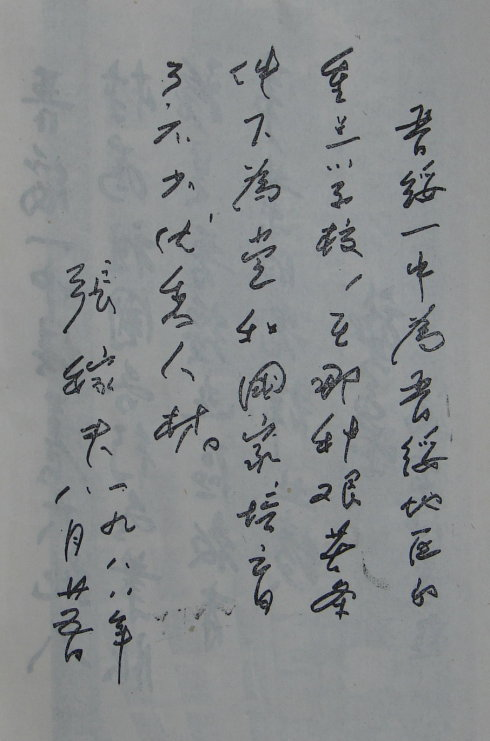 晋綏一中為晋綏地区的
重点学校，在那种艰苦条
件下為党和國家培育
了不少优秀人材。
張稼夫
一九八八年
八月廿五日